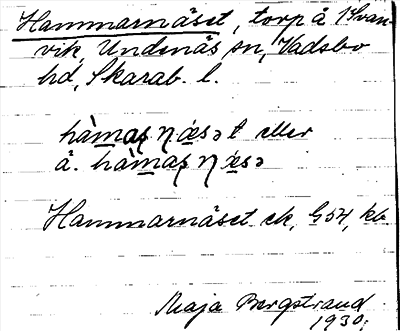 Hammarnäset, torp å Svan-
vik, Undenäs sn, Vadsbo
hd, Skarab. l.
hàmaṛṇæ̀sət eller
å. hàmaṛṇæ̀sə
Hammarnäset ek, §54, kb
Maja Bergstrand
1930.